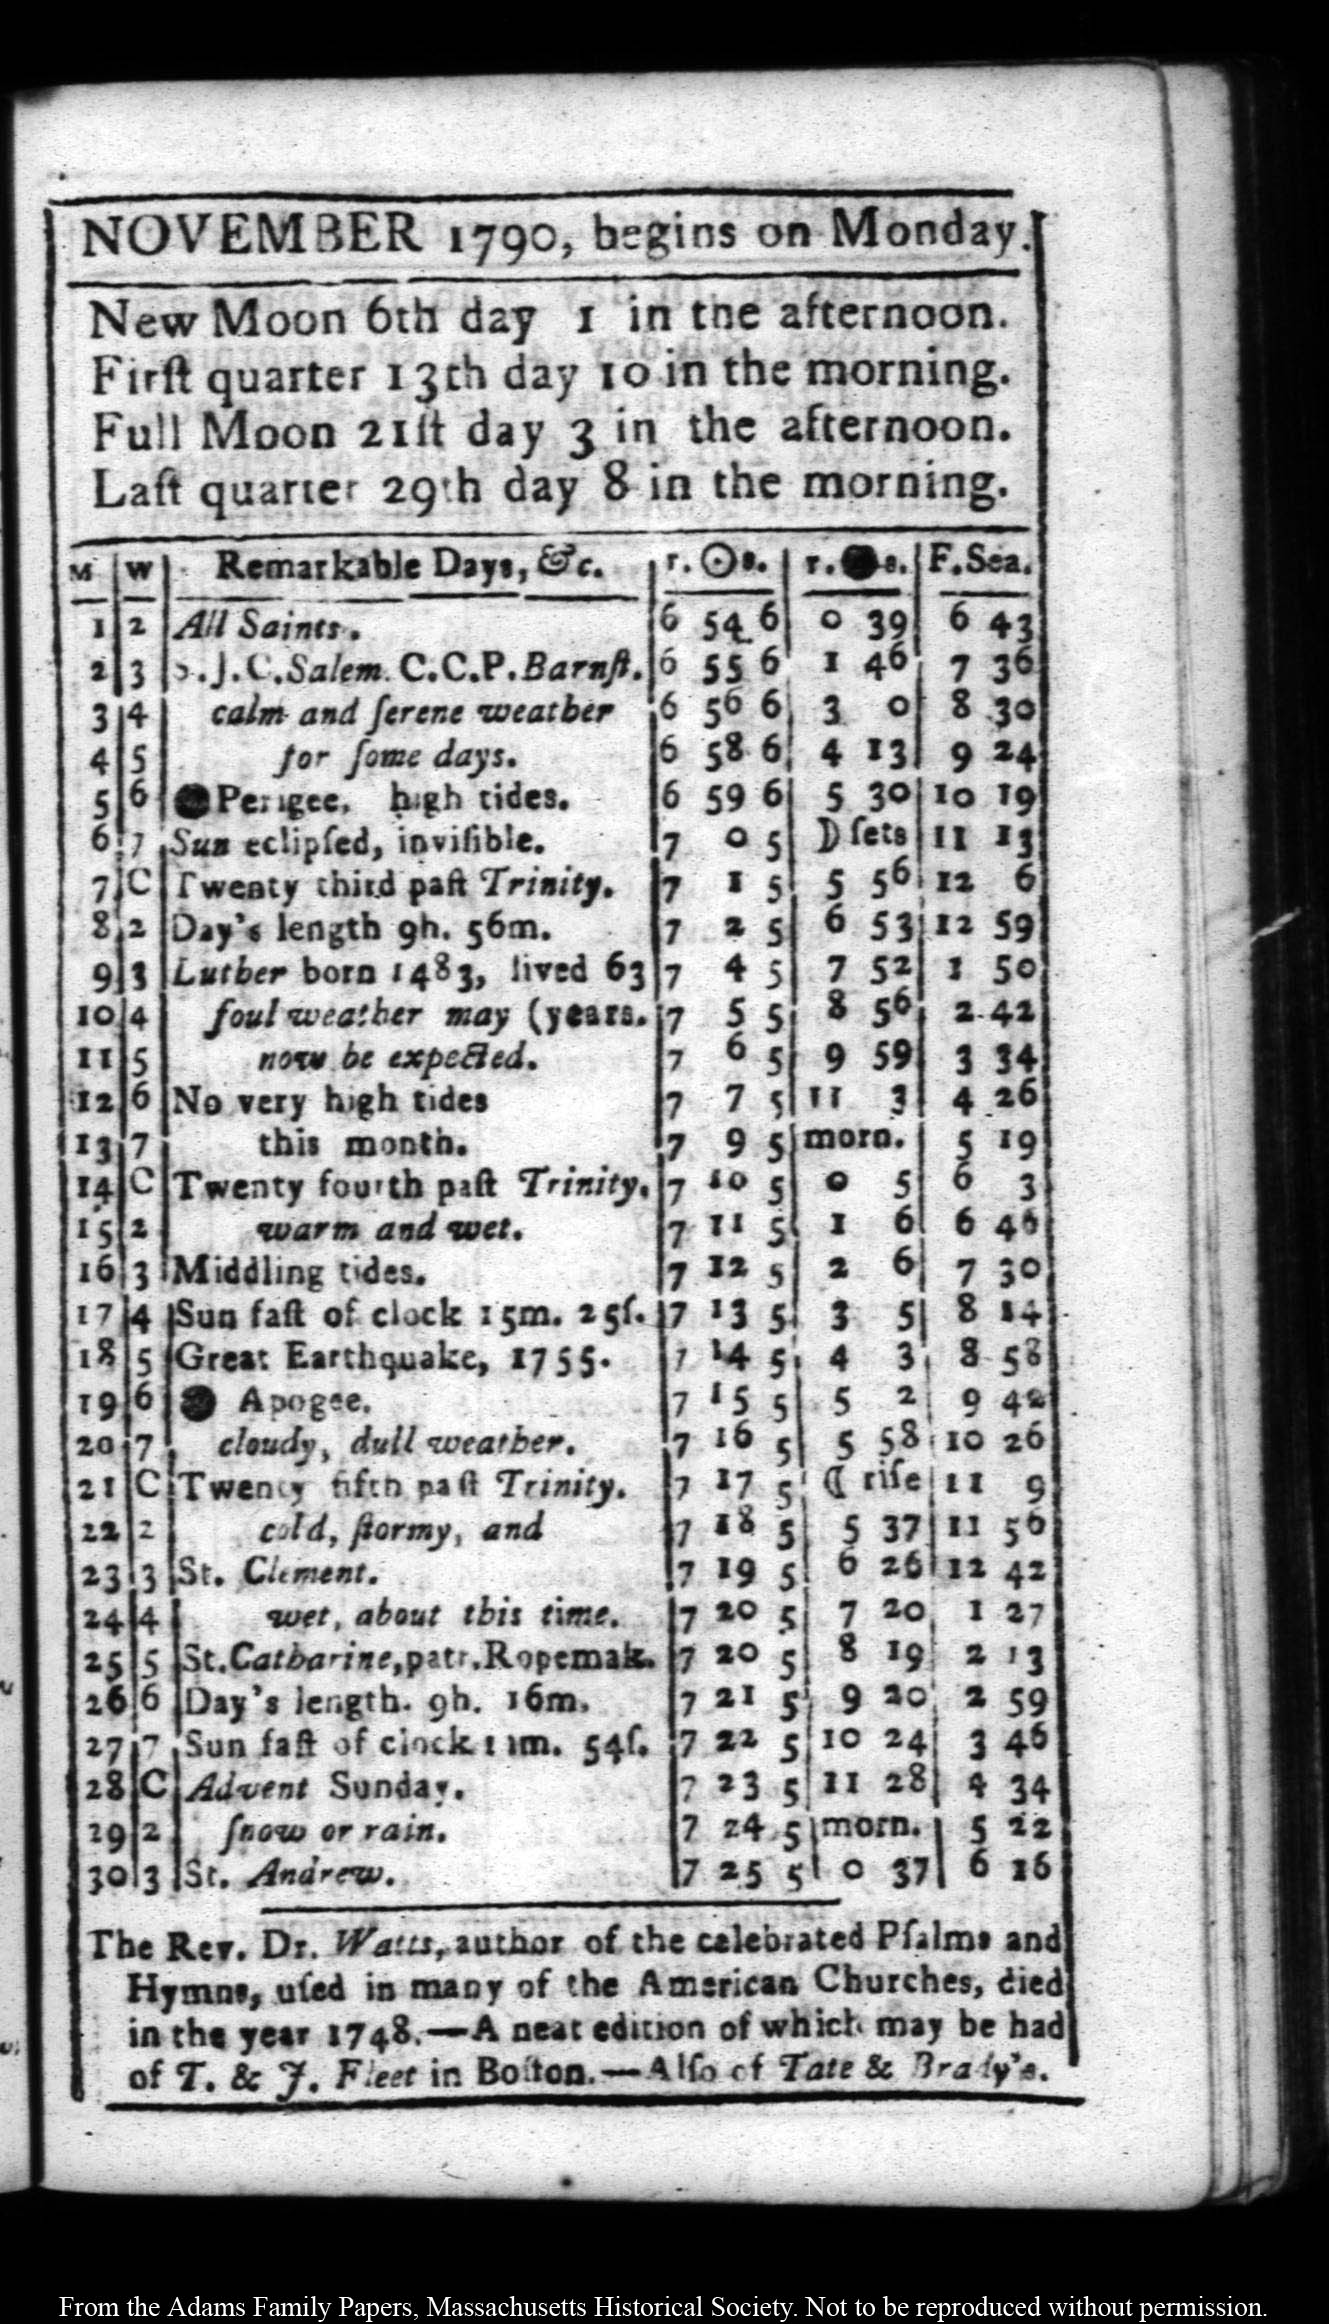 NOVEMBER 1790, begins on Monday.
New Moon 6th day 1 in the afternoon.
Firſt quarter 13th day 10 in the morning.
Full Moon 21ſt day 3 in the afternoon.
Laſt quarter 29th day 8 in the morning.
M W Remarkable Days, &c. r. ☉ s. r. ● s. F. Sea.
1 2 All Saints. 6 54 6 0 39 6 43
2 3 S.J.C. Salem. C.C.P. Barnſt. 6 55 6 1 46 7 36
3 4 calm and ſerene weather 6 56 6 3 0 8 30
4 5 for ſome days. 6 58 6 4 13 9 24
5 6 ● Perigee, high tides. 6 59 6 5 30 10 19
6 7 Sun eclipſed, inviſible. 7 0 5 ☽ ſets 11 13
7 C Twenty third paſt Trinity. 7 1 5 5 56 12 6
8 2 Day's length 9h. 56m. 7 2 5 6 53 12 59
9 3 Luther born 1483, lived 63 7 4 5 7 52 1 50
10 4 foul weather may (years. 7 5 5 8 56 2 42
11 5 now be expected. 7 6 5 9 59 3 34
12 6 No very high tides 7 7 5 11 3 4 26
13 7 this month. 7 9 5 morn. 5 19
14 C Twenty fourth paſt Trinity. 7 10 5 0 5 6 3
15 2 warm and wet. 7 11 5 1 6 6 46
16 3 Middling tides. 7 12 5 2 6 7 30
17 4 Sun faſt of clock 15m. 25ſ. 7 13 5 3 5 8 14
18 5 Great Earthquake, 1755. 7 14 5 4 3 8 58
19 6 ● Apogee. 7 15 5 5 2 9 42
20 7 cloudy, dull weather. 7 16 5 5 58 10 26
21 C Twenty fifth paſt Trinity. 7 17 5 ☾ riſe 11 9
22 2 cold, ſtormy, and 7 18 5 5 37 11 56
23 3 St. Clement. 7 19 5 6 26 12 42
24 4 wet, about this time. 7 20 5 7 20 1 27
25 5 St. Catharine, patr. Ropemak. 7 20 5 8 19 2 13
26 6 Day's length. 9h. 16m. 7 21 5 9 20 2 59
27 7 Sun faſt of clock 11m. 54ſ. 7 22 5 10 24 3 46
28 C Advent Sunday. 7 23 5 11 28 4 34
29 2 ſnow or rain. 7 24 5 morn. 5 22
30 3 St. Andrew. 7 25 5 0 37 6 16
The Rev. Dr. Watts, author of the celebrated Pſalms and
Hymns, uſed in many of the American Churches, died
in the year 1748.—A neat edition of which may be had
of T. & J. Fleet in Boſton.—Alſo of Tate & Brady's.
From the Adams Family Papers, Massachusetts Historical Society. Not to be reproduced without permission.